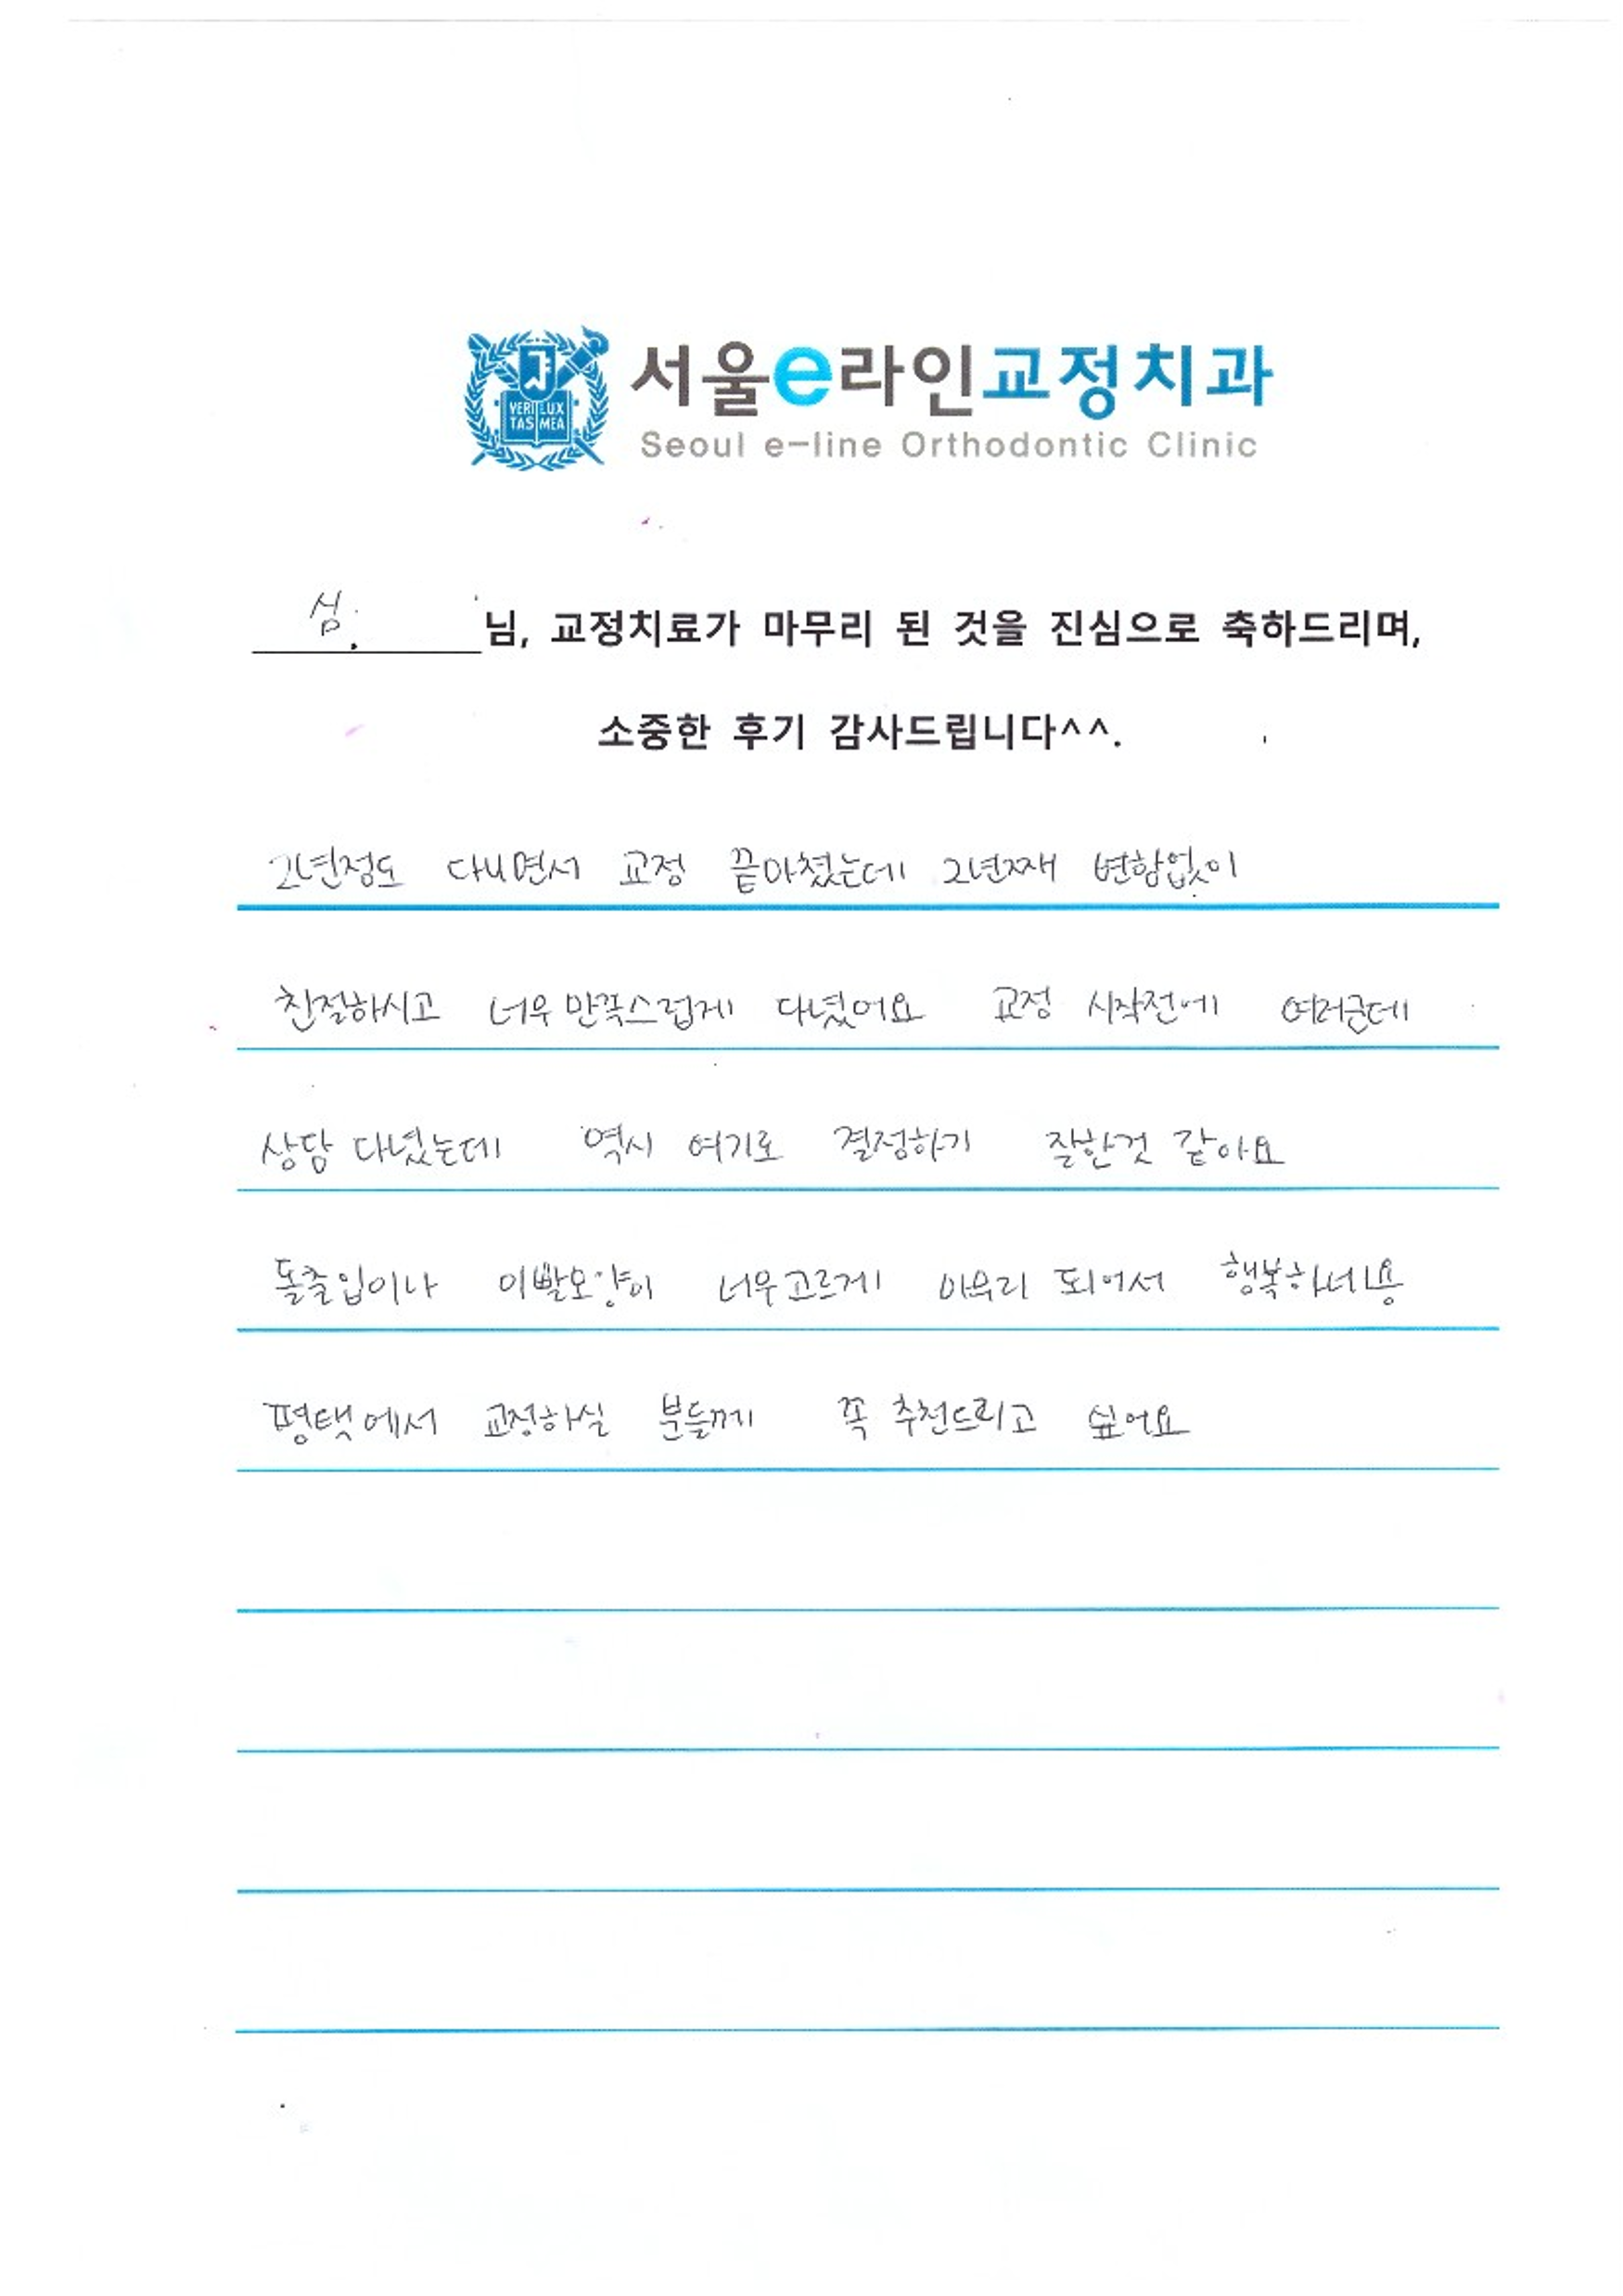 VERI LUX
TAS MEA
서울e라인교정치과
Seoul e-line Orthodontic Clinic
심. 님, 교정치료가 마무리 된 것을 진심으로 축하드리며,
소중한 후기 감사드립니다^^.
2년정도 다니면서 교정 끝마쳤는데 2년째 변함없이
친절하시고 너무 만족스럽게 다녔어요 교정 시작전에 여러군데
상담 다녔는데 역시 여기로 결정하기 잘한것 같아요
돌출입이나 이빨모양이 너무 고르게 마무리 되어서 행복하네용
평택에서 교정하실 분들께 꼭 추천드리고 싶어요